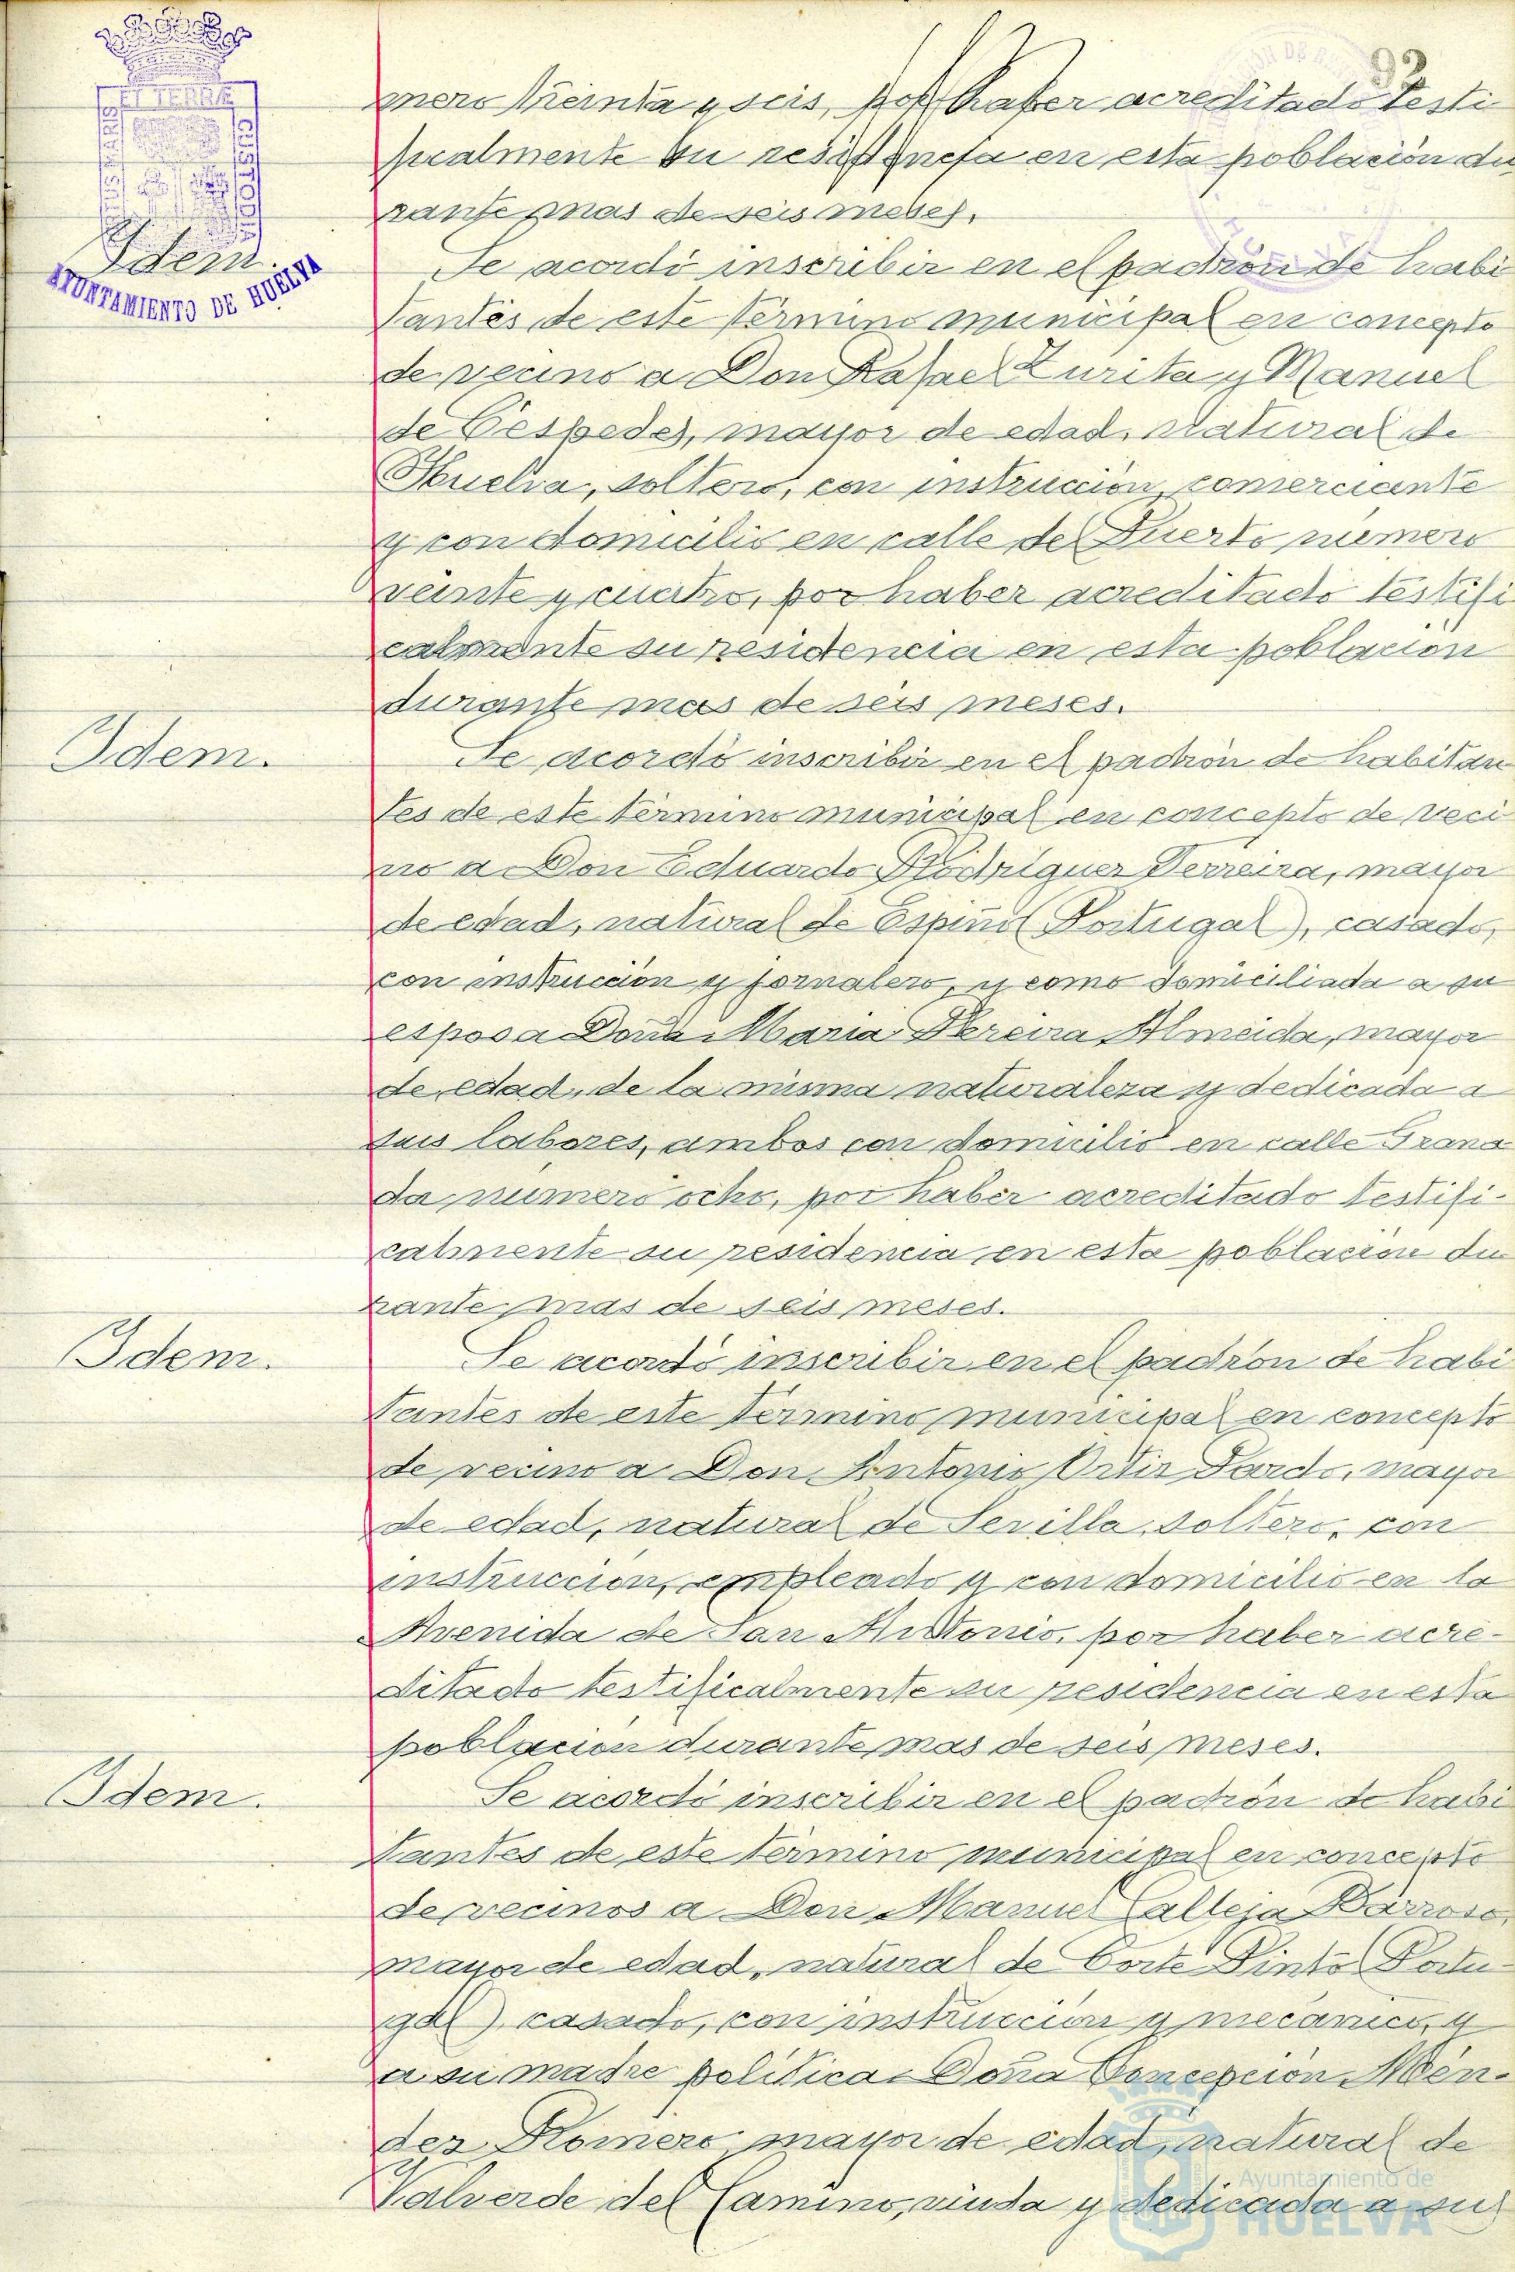 92
ET TERRÆ
CUSTODIA
MARIS
AYUNTAMIENTO DE HUELVA
mero treinta y seis, por haber acreditado testi
ficalmente su residencia en esta población du
rante mas de seis meses.
Idem.
Se acordó inscribir en el padrón de habi
tantes de este término municipal en concepto
de vecino a Don Rafael Zurita y Manuel
de Céspedes, mayor de edad, natural de
Huelva, soltero, con instrucción, comerciante
y con domicilio en calle del Puerto número
veinte y cuatro, por haber acreditado testifi
calmente su residencia en esta población
durante mas de seis meses.
Idem.
Se acordó inscribir en el padrón de habitan
tes de este término municipal en concepto de veci
no a Don Eduardo Rodríguez Ferreira, mayor
de edad, natural de Espiño (Portugal), casado,
con instrucción y jornalero, y como domiciliada a su
esposa Doña Maria Pereira Almeida, mayor
de edad, de la misma naturaleza y dedicada a
sus labores, ambos con domicilio en calle Grana
da número ocho, por haber acreditado testifi-
calmente su residencia en esta población du
rante mas de seis meses.
Idem.
Se acordó inscribir en el padrón de habi
tantes de este término municipal en concepto
de vecino a Don Antonio Ortiz Pardo, mayor
de edad, natural de Sevilla, soltero, con
instrucción, empleado y con domicilio en la
Avenida de San Antonio, por haber acre-
ditado testificalmente su residencia en esta
población durante mas de seis meses.
Idem.
Se acordó inscribir en el padrón de habi
tantes de este término municipal en concepto
de vecinos a Don Manuel Calleja Barroso,
mayor de edad, natural de Corte Pinto (Portu-
gal) casado, con instrucción y mecánico, y
a su madre política Doña Concepción Mén-
dez Romero mayor de edad, natural de
Valverde del Camino, viuda y dedicada a sus
Ayuntamiento de
HUELVA